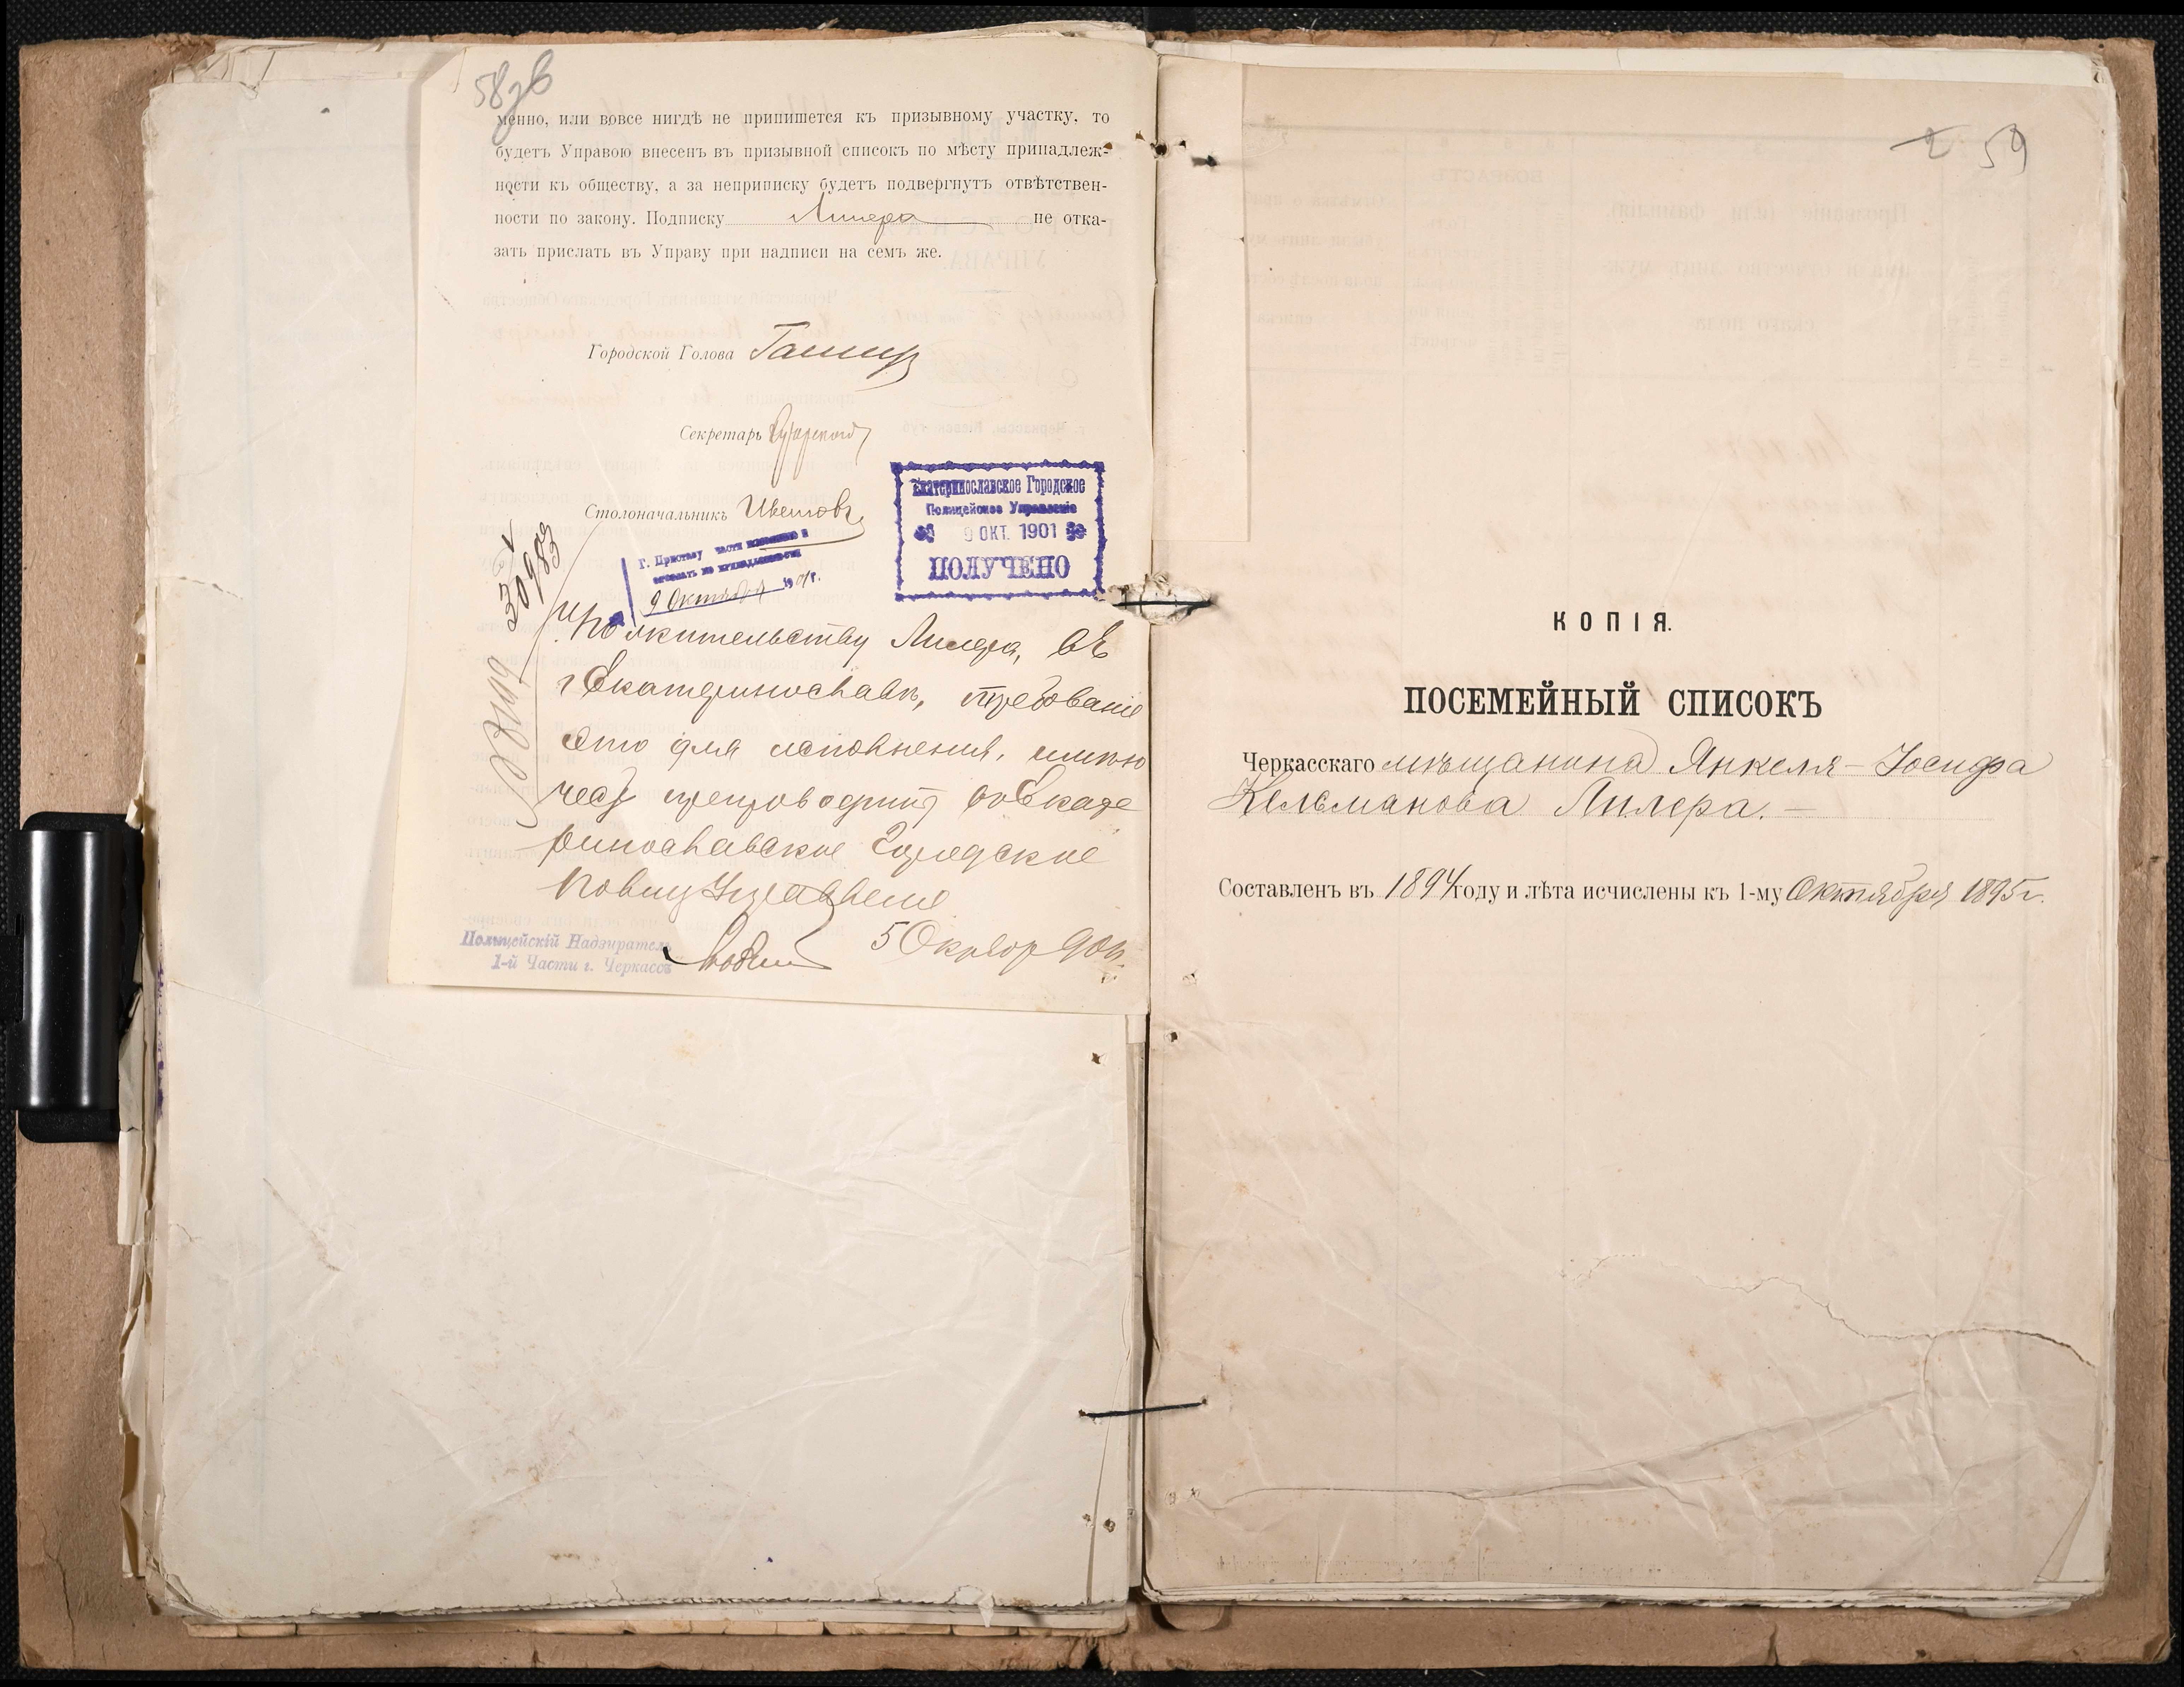 58 об
менно, или вовсе нигдѣ не припишется къ призывному участку, то
будетъ Управою внесенъ въ призывной списокъ по мѣсту принадлеж-
ности къ обществу, а за неприписку будетъ подвергнутъ отвѣтствен-
ности по закону. Подписку Липера не отка-
зать прислать въ Управу при надписи на семъ же.
Городской Голова
Секретарь
Столоначальникъ
Екатеринославское Городское
Полицейское Управленіе
9 ОКТ. 1901
ПОЛУЧЕНО
Г. Приставу части
9 Октября 1901 г.
30983
По жительству Липера, въ
г Екатеринославъ, требованіе
это для исполненія,
препроводить въ Екате
ринославское Городское
5 Октября 901 г.
Полицейскій Надзиратель
1-й Части г. Черкассъ
2 59
КОПІЯ.
ПОСЕМЕЙНЫЙ СПИСОКЪ
Черкасскаго мѣщанина Янкеля-Іосифа
Кельманова Липера. —
Составленъ въ 1894 году и лѣта исчислены къ 1-му Октября 1895 г.